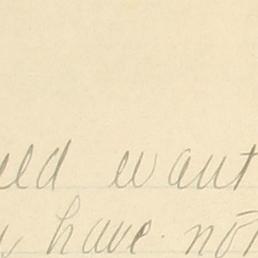 want
have not